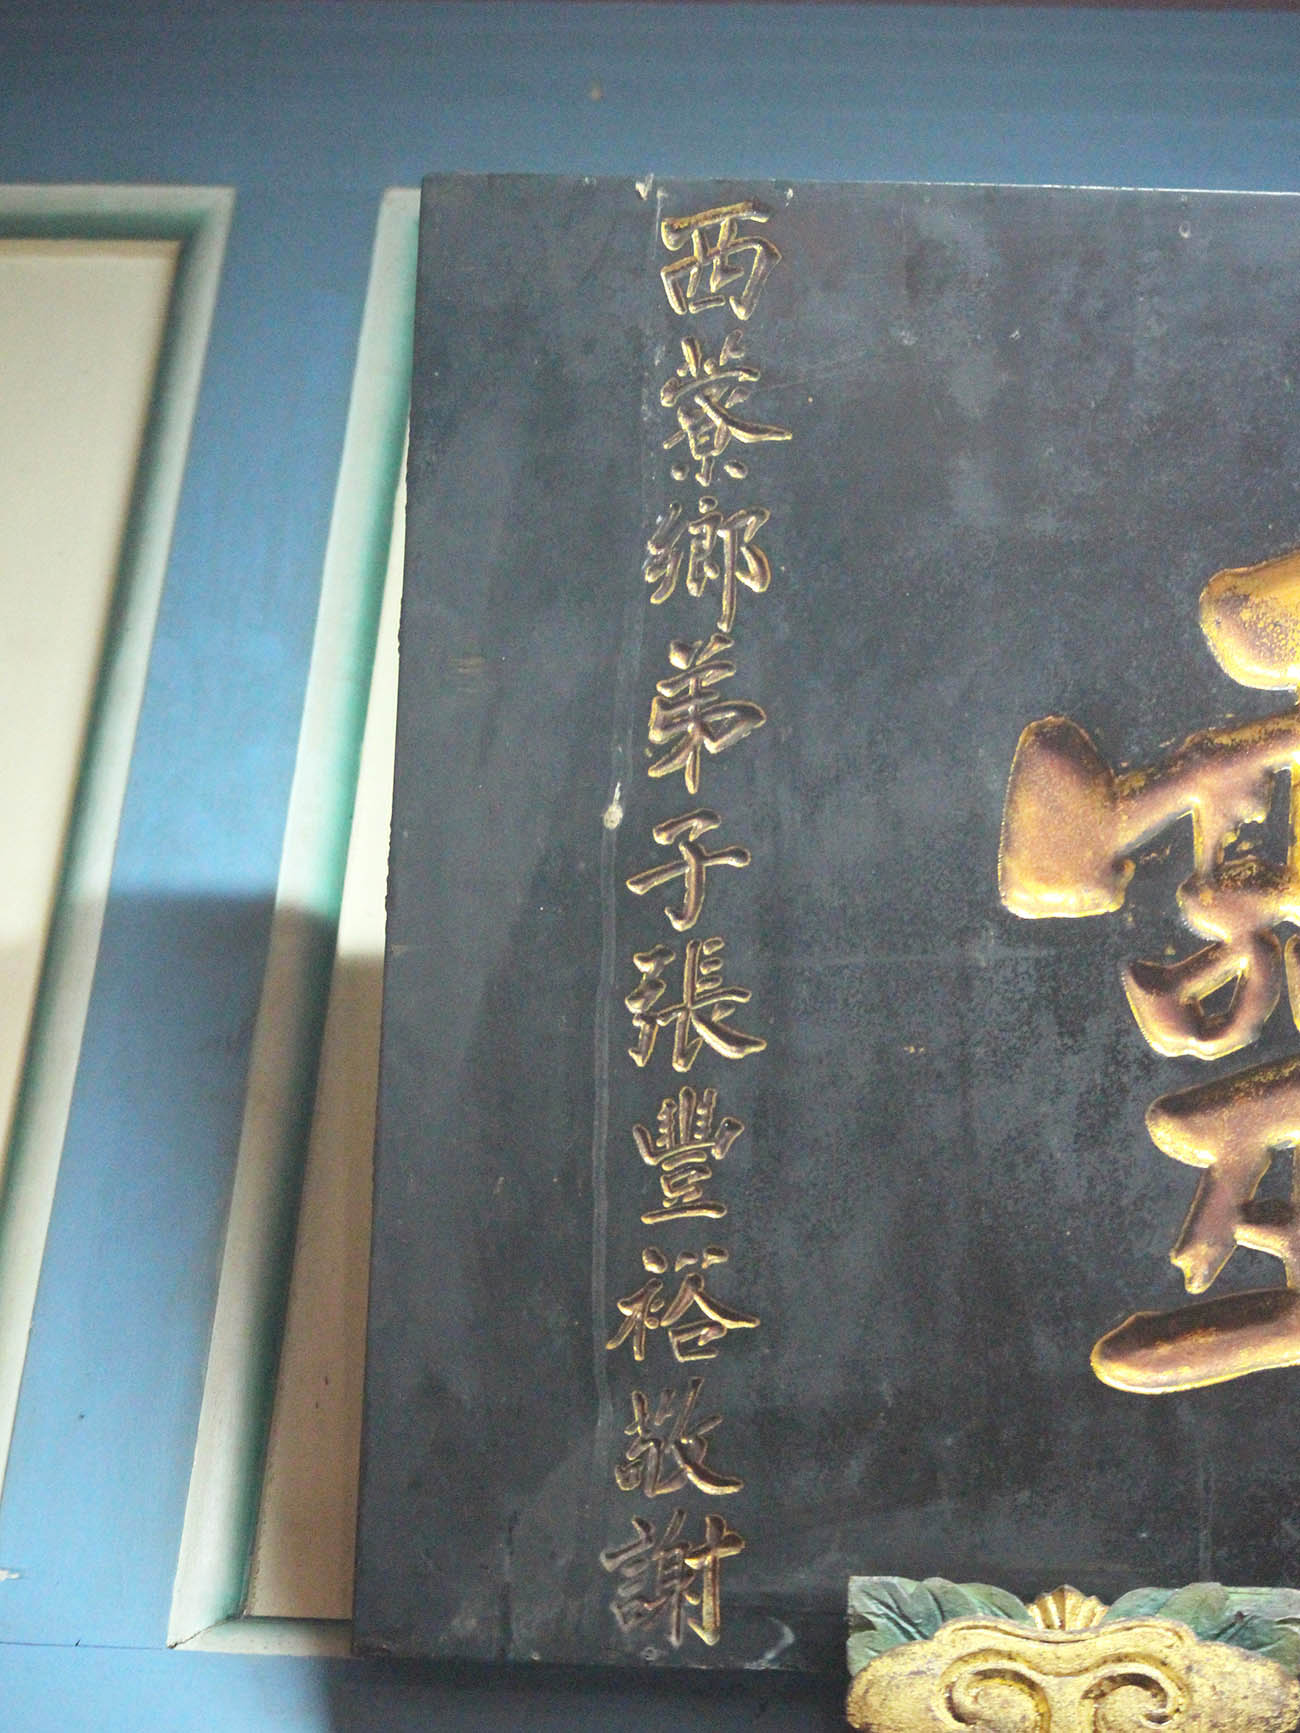 西藔鄉弟子張豐裕敬謝